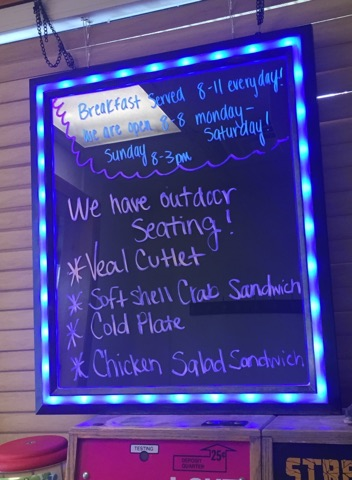 Breakfast Served 8-11 everyday!
We are open 8-8 monday-
Saturday!
Sunday 8-3pm
We have outdoor
Seating!
*Veal Cutlet
* Soft shell Crab Sandwich
* Cold Plate
* Chicken Salad Sandwich
TESTING
25¢
QUARTER